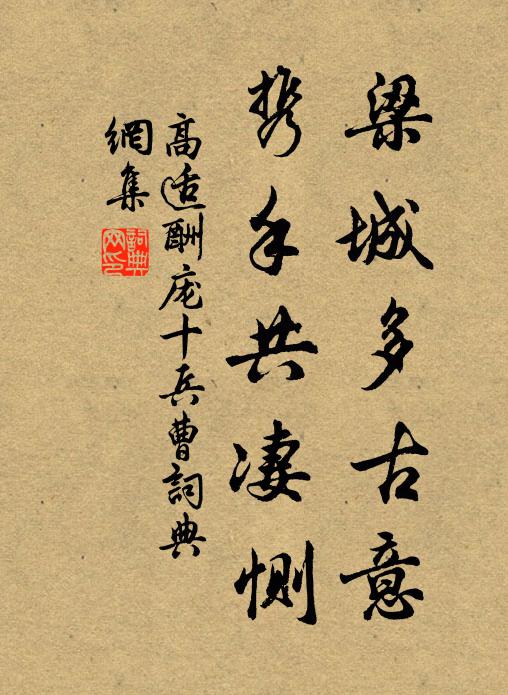 梁城多古意
携手共凄恻
高适酬庞十兵曹詞典
網集
詞典
网印